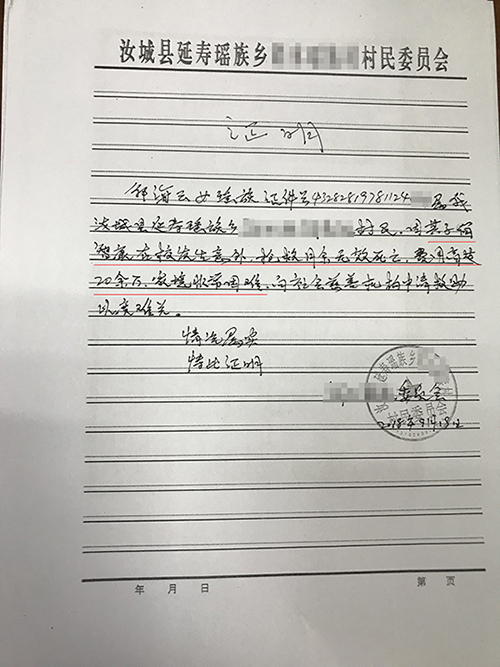 汝城县延寿瑶族乡 村民委员会
证明
邹海云 女 瑶族 证件号43282519781124 属我
汝城县延寿瑶族乡 村民。因其子何
智 在校发生意外，抢救月余无效死亡，费用高达
20余万，家境非常困难，向社会慈善机构申请救助
以度难关。
情况属实
特此证明
委员会
2018年9月18日
延寿瑶族乡
村民委员会
年 月 日 第 页